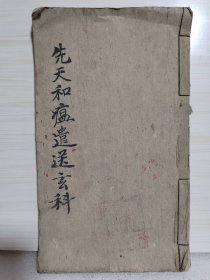 先天和瘟遣送玄科